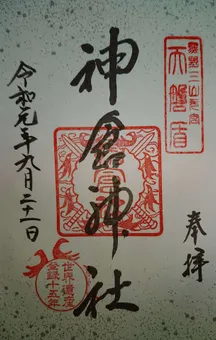 奉拝
天磐盾
神倉神社
世界遺産
登録十五年
令和元年九月二十一日